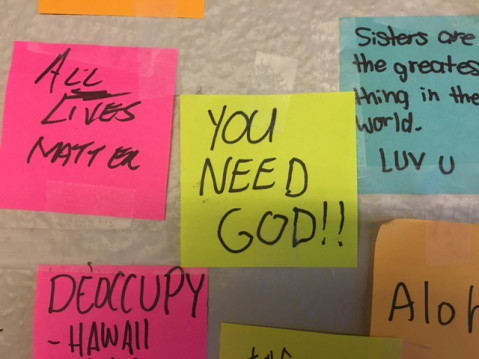 ALL
LIVES
MATTER
YOU
NEED
GOD!!
Sisters are
the greates
thing in the
world.
LUV U
DEOCCUPY
- HAWAII
Aloh